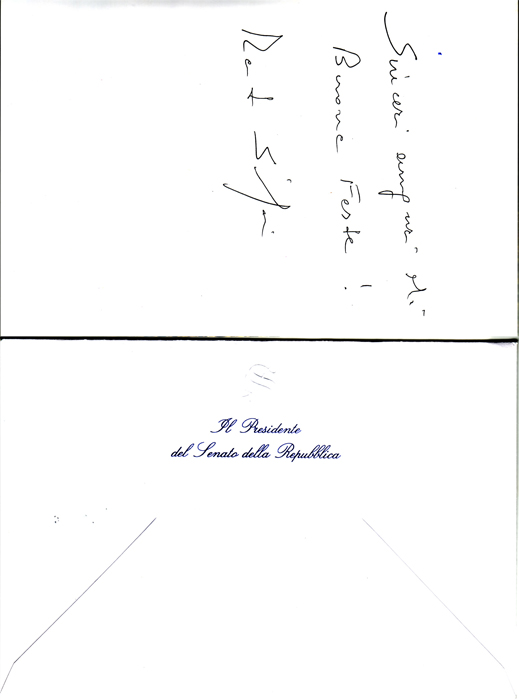 Sinceri auguri di
Buone Feste!
Il Presidente
del Senato della Repubblica